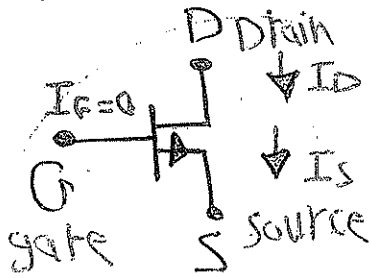 D Drain
I_G=0
I_D
G
I_S
gate
S source